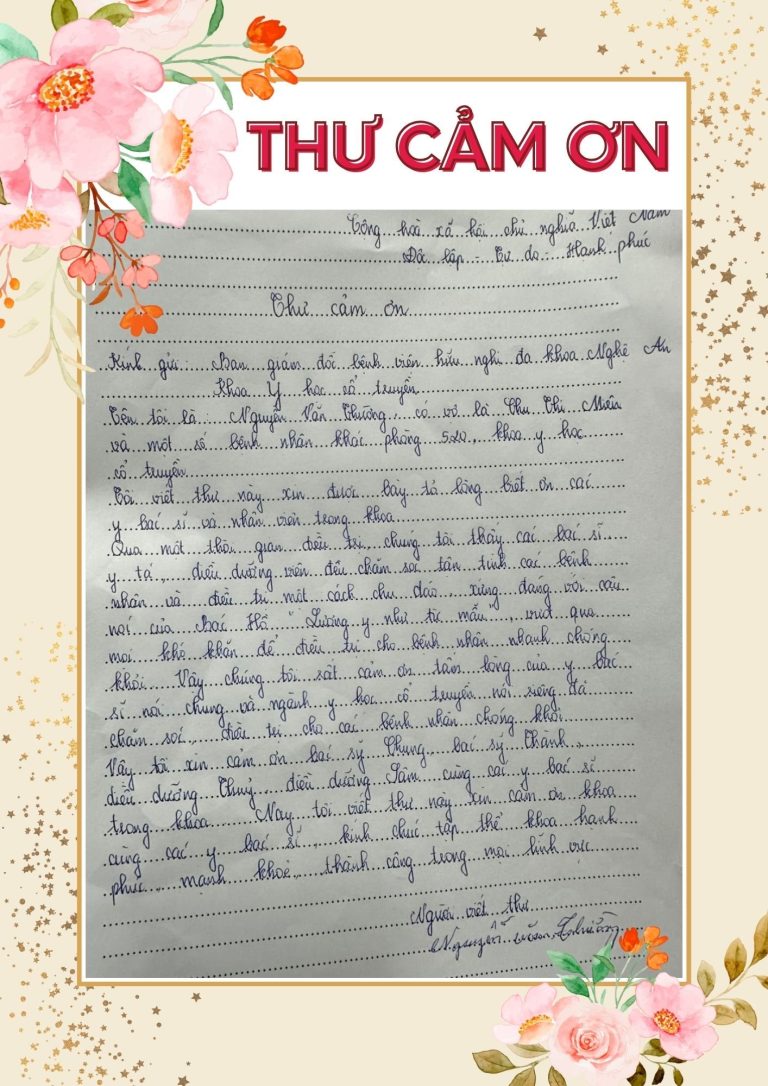 THƯ CẢM ƠN
Cộng hoà xã hội chủ nghĩa Việt Nam
Độc lập - Tự do - Hạnh phúc
Thư cảm ơn
Kính gửi: Ban giám đốc bệnh viện hữu nghị đa khoa Nghệ An
Khoa Y học cổ truyền
Tên tôi là: Nguyễn Văn Thường, có vợ là Chu Thị Miến
và một số bệnh nhân khác phòng 520, khoa y học
cổ truyền
Tôi viết thư này xin được bày tỏ lòng biết ơn các
y bác sĩ và nhân viên trong khoa
Qua một thời gian điều trị, chúng tôi thấy các bác sĩ
y tá, điều dưỡng viên đều chăm sóc tận tình các bệnh
nhân và điều trị một cách chu đáo, xứng đáng với câu
nói của Bác Hồ "Lương y như từ mẫu", vượt qua
mọi khó khăn để điều trị cho bệnh nhân nhanh chóng
khỏi. Vậy chúng tôi rất cảm ơn tấm lòng của y bác
sĩ nói chung và ngành y học cổ truyền nói riêng đã
chăm sóc, điều trị cho các bệnh nhân chóng khỏi
Vậy tôi xin cảm ơn bác sỹ Chung, bác sỹ Thành,
điều dưỡng Thuỷ, điều dưỡng Tâm cùng các y bác sĩ
trong khoa. Nay tôi viết thư này xin cảm ơn khoa
cùng các y bác sĩ, kính chúc tập thể khoa hạnh
phúc, mạnh khoẻ, thành công trong mọi lĩnh vực
Người viết thư
Nguyễn văn Thường